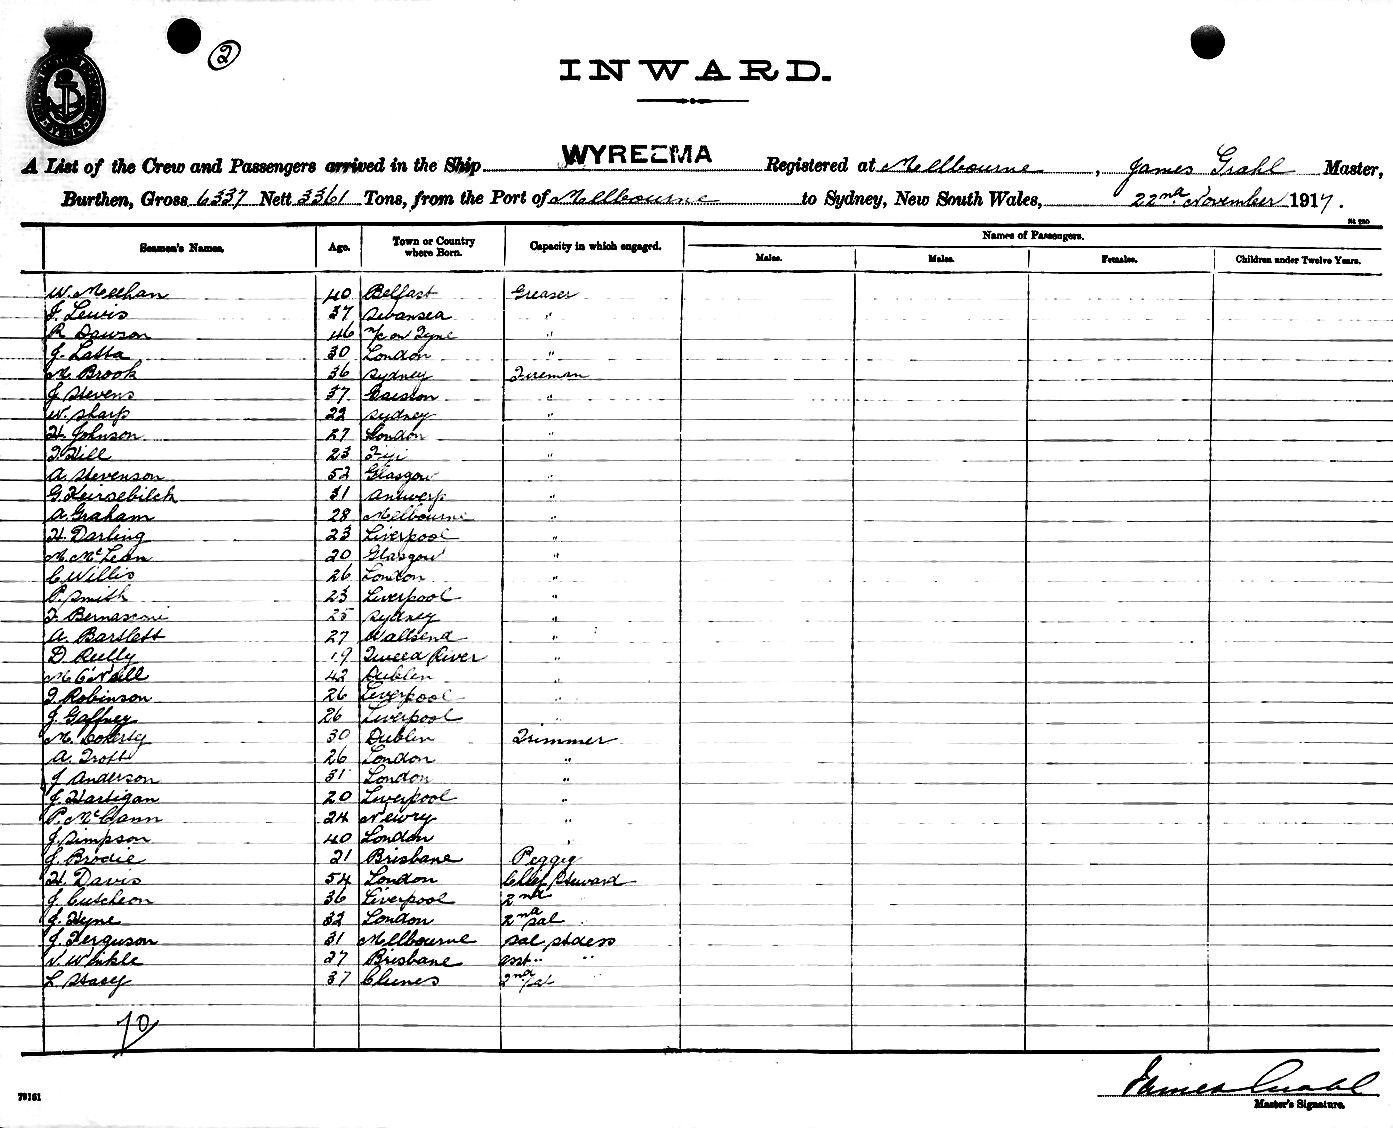 2
INWARD.
A List of the Crew and Passengers arrived in the Ship WYREEMA Registered at Melbourne, James Grahl Master,
Burthen, Gross 6337 Nett 3361 Tons, from the Port of Melbourne to Sydney, New South Wales, 22nd November 1917.
Seamen's Names. Age. Town or Country where Born. Capacity in which engaged. Names of Passengers.
Males. Males. Females. Children under Twelve Years.
W. Meehan 40 Belfast Greaser
J. Lewis 37 Swansea "
R Dawson 46 N/c on Tyne "
J. Latta 30 London "
M. Brook 36 Sydney Fireman
J Stevens 37 "
W. Sharp 22 Sydney "
H. Johnson 27 London "
T. Hill 23 Fiji "
A. Stevenson 52 Glasgow "
G. Heirsebilck 31 Antwerp "
A. Graham 28 Melbourne "
H. Darling 23 Liverpool "
M. McLean 20 Glasgow "
C Willis 26 London "
P. Smith 23 Liverpool "
F. Bernasconi 25 Sydney "
A. Bartlett 27 Wallsend "
D. Reilly 19 Tweed River "
M O'Neill 42 Dublin "
T. Robinson 26 Liverpool "
J. Gaffney 26 Liverpool "
M. Doherty 30 Dublin Trimmer
A. Trott 26 London "
J Anderson 31 London "
J. Hartigan 20 Liverpool "
P. McCann 24 Newry "
J. Simpson 40 London "
J. Brodie 21 Brisbane Peggy
H. Davis 54 London Chief Steward
J. Cutcheon 36 Liverpool 2nd
J. Hyne 32 London 2nd Sal
J. Ferguson 31 Melbourne Sal Stdess
V. Winkle 27 Brisbane Asst " "
L Stacy 37 Clunes 2nd Sal
70
James Grahl
Master's Signature.
79161